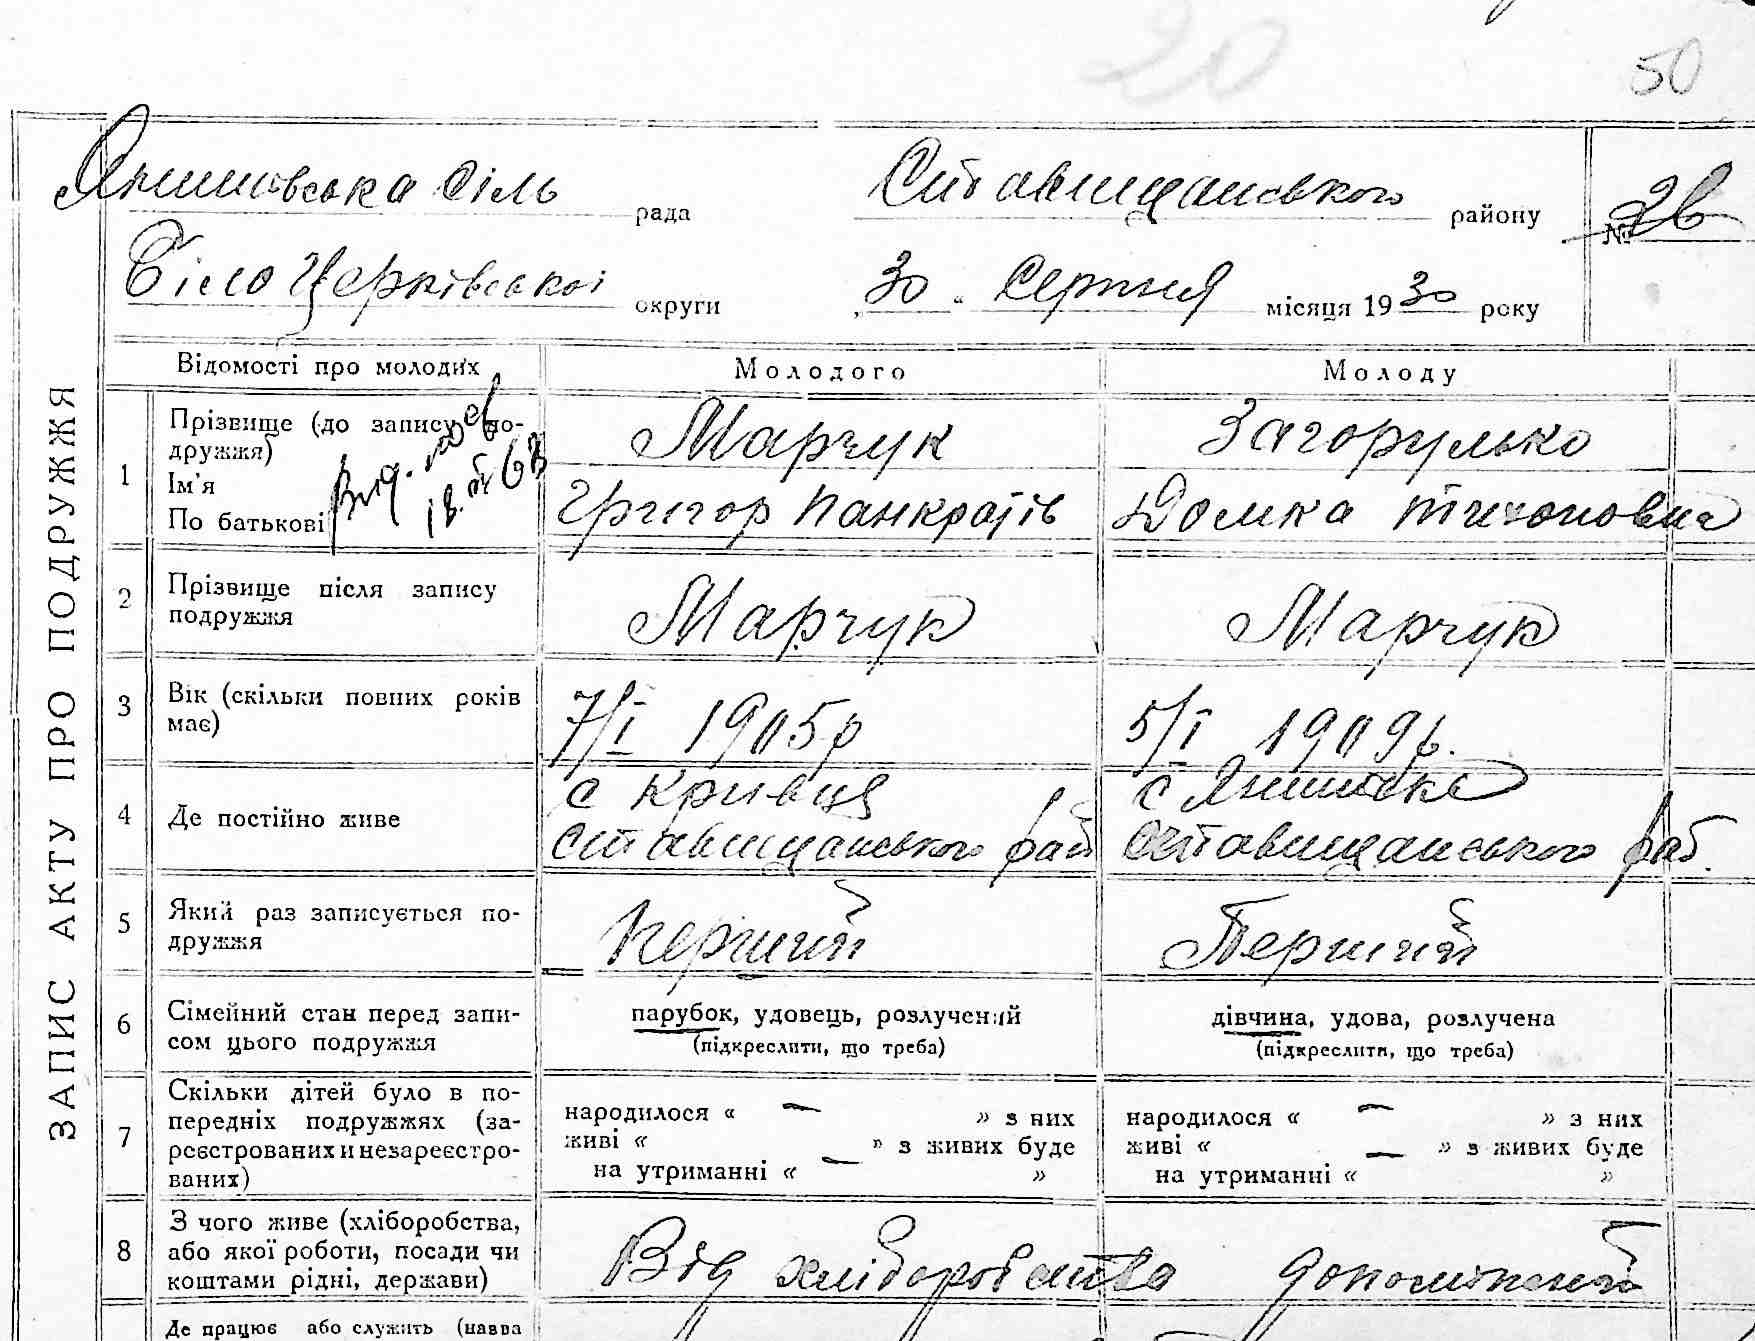 20
50
Янишівська сіль рада Ставищанського району № 2в
Білоцерківської округи 30 Серпня місяця 1930 року
ЗАПИС АКТУ ПРО ПОДРУЖЖЯ
Відомості про молодих Молодого Молоду
1 Прізвище (до запису по-
дружжя) Марчук Загорулько
Ім'я
По батькові Григор Панкратів Домка Тихоновна
18. 63
2 Прізвище після запису
подружжя Марчук Марчук
3 Вік (скільки повних років
має) 7/I 1905р 5/I 1909р.
4 Де постійно живе с Кривця с Янишівка
Ставищанського рай Ставищанського рай.
5 Який раз записується по-
дружжя Перший Перший
6 Сімейний стан перед запи-
сом цього подружжя парубок, удовець, розлучений дівчина, удова, розлучена
(підкреслити, що треба) (підкреслити, що треба)
7 Скільки дітей було в по-
передніх подружжях (за-
реєстрованих и незареєстро-
ваних)
народилося « — » з них народилося « — » з них
живі « » з живих буде живі « — » з живих буде
на утриманні « — » на утриманні « »
8 З чого живе (хліборобства,
або якої роботи, посади чи
коштами рідні, держави) Від хліборобства
Де працює або служить (назва